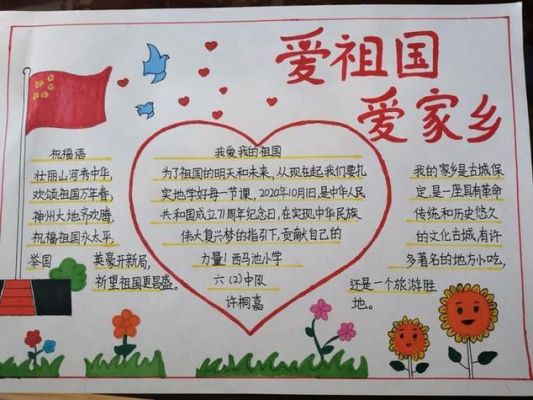 爱祖国
爱家乡
祝福语
壮丽山河秀中华,
欢颂祖国万年春,
神州大地齐欢腾,
祝福祖国永太平,
举国 英豪开新局,
祈望祖国更昌盛。
我爱我的祖国
为了祖国的明天和未来,从现在起我们要扎
实地学好每一节课,2020年10月1日,是中华人民
共和国成立71周年纪念日,在实现中华民族
伟大复兴梦的指引下,贡献自己的
力量!西马池小学
六(2)中队
许桐嘉
我的家乡是古城保
定,是一座具有革命
传统和历史悠久
的文化古城,有许
多著名的地方小吃,
还是一个旅游胜
地。